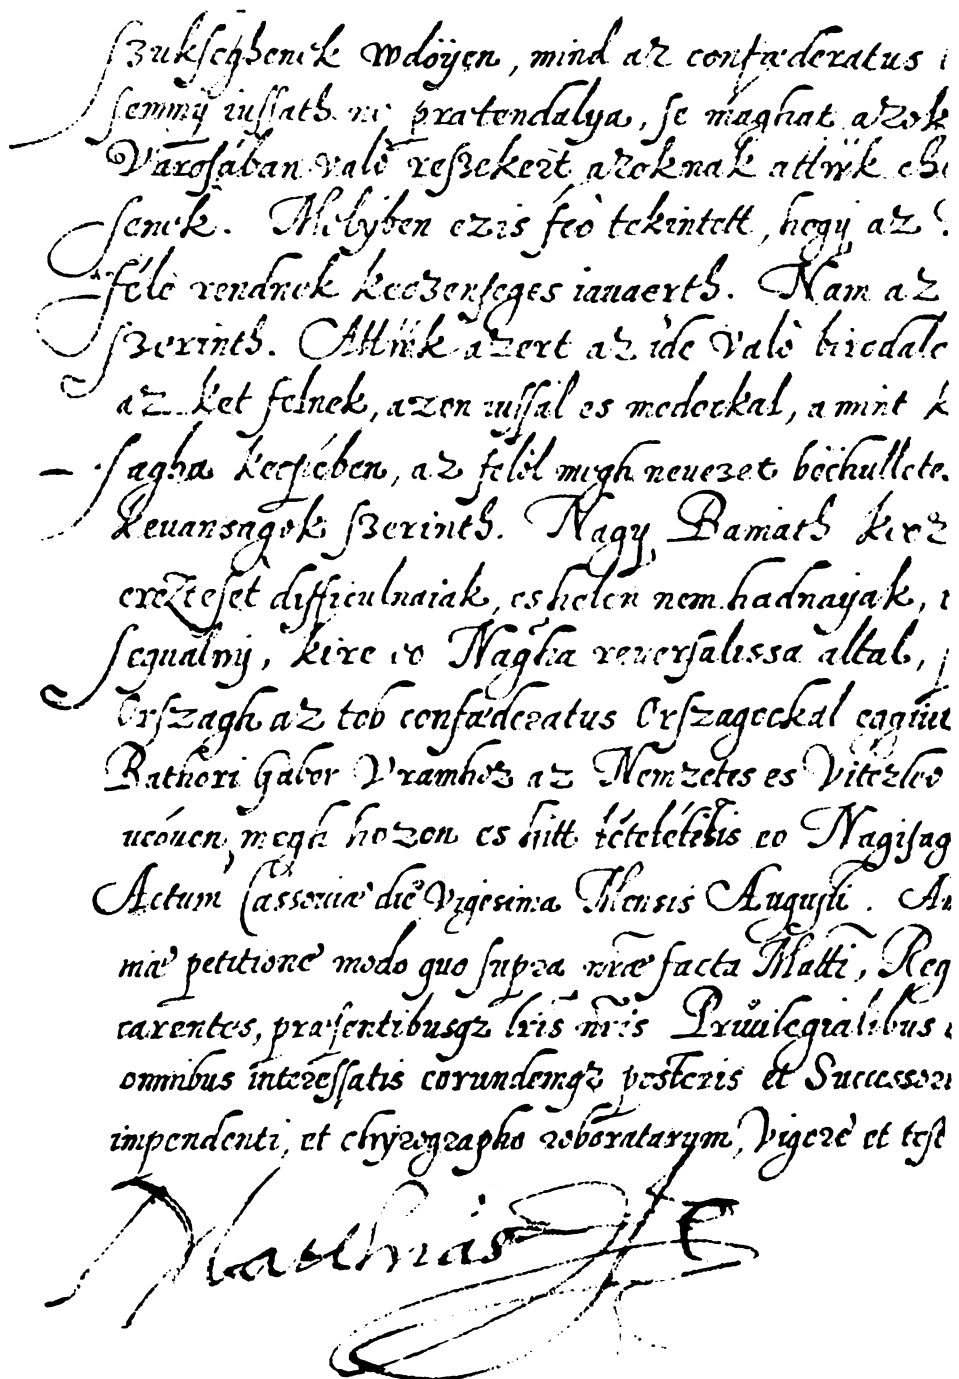 szukseghenek wdöyen, mind az confæderatus
semmÿ iussath ne prætendalya, se maghat azok
Varosában valo reszekert azoknak attÿk
senek. Melÿben ezis feö tekintett, hogÿ az
féle rendnek keozenseges iauaerth. Nam az
szerinth. Attÿk azert az ide valo birodal
az ket felnek, azon iussal es modockal, a mint k
sagha keppében, az felöl megh nevezet böchullete
keuansagok szerinth. Nagÿ Bamath
erezteset difficulnaiak, es helen nem hadnayak,
sequalnÿ, kire eo Nagha reuersalissa altal,
Orszagh az tob confœderatus Orszagockal
Bathori Gabor Vramhoz az Nemzetes es Vitezleo
ueóuen, megh hozon es hitt tételétis eo Nagisag
Actum Cassouiæ die Vigesima Mensis Augusti. An
mæ petitione modo quo supra nræ facta Matti, Reg
carentes, præsentibusqꝫ lris nris Priuilegialibus
omnibus interessatis eorundemqꝫ posteris et Successori
impendenti, et chyrographo roboratarum, Vigore et test
Matthias